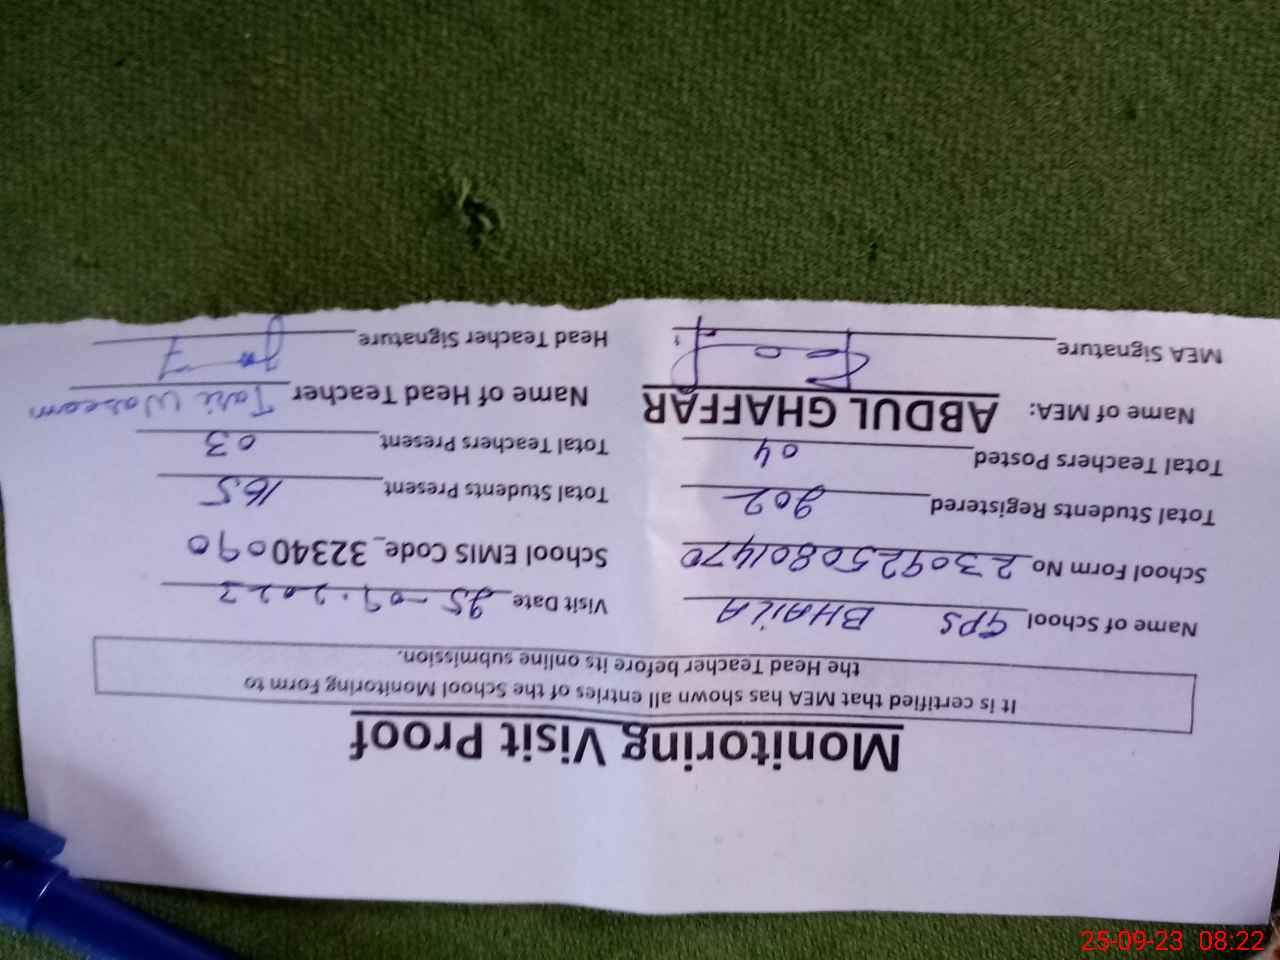 Monitoring Visit Proof
It is certified that MEA has shown all entries of the School Monitoring Form to
the Head Teacher before its online submission.
Name of School GPS BHAILA Visit Date 25-09-2023
School Form No 2309250801470 School EMIS Code_32340090
Total Students Registered 202 Total Students Present 165
Total Teachers Posted 04 Total Teachers Present 03
Name of MEA: ABDUL GHAFFAR Name of Head Teacher Waseem
MEA Signature Head Teacher Signature
25-09-23 08:22